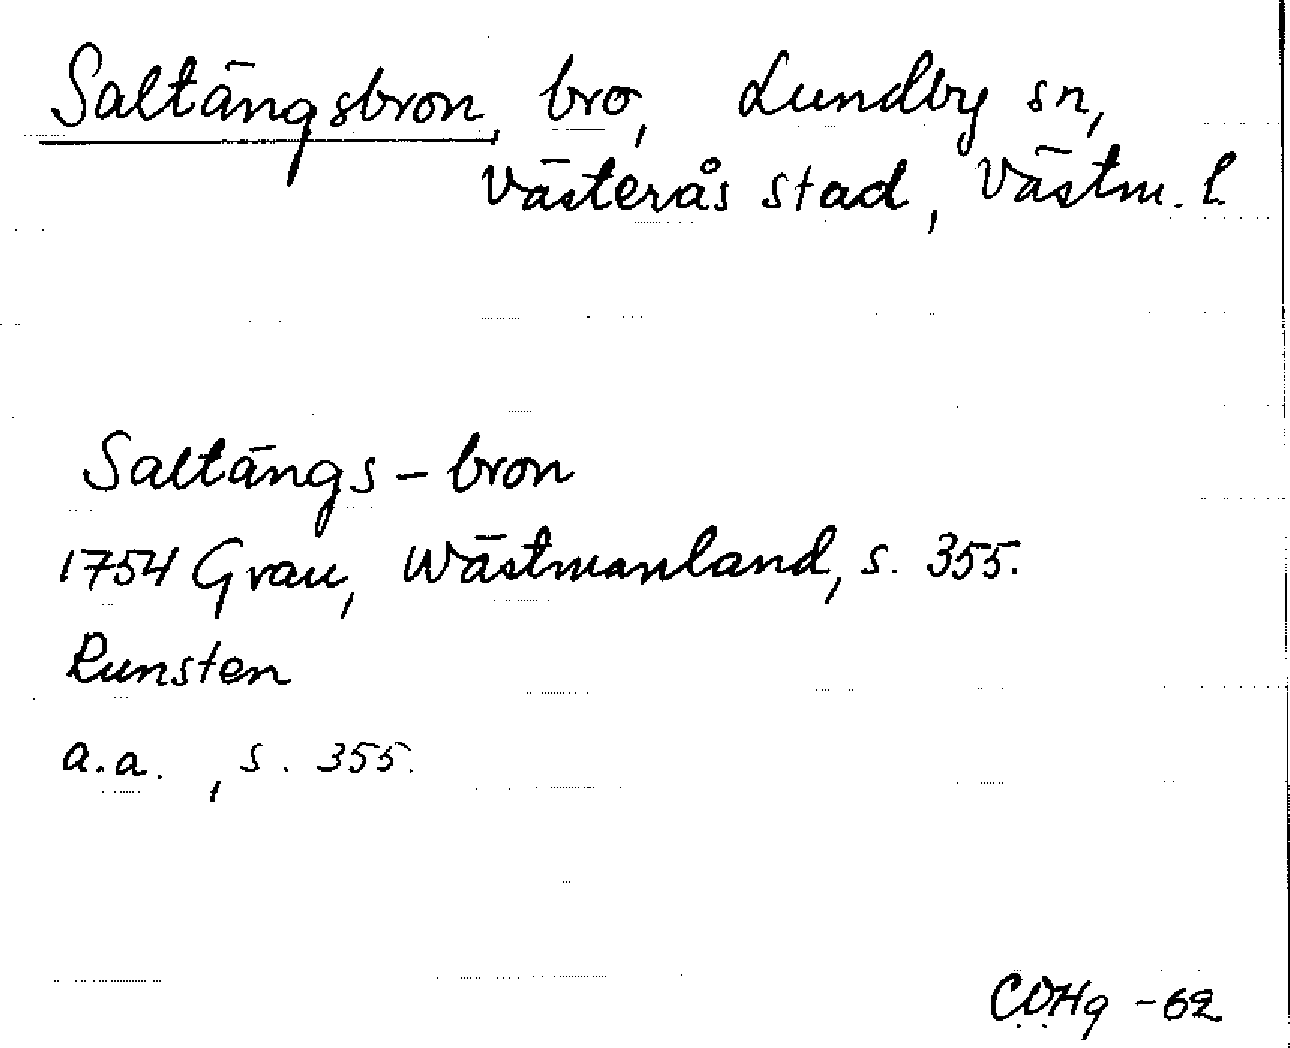 Saltängsbron, bro, Lundby sn,
Västerås stad, Västm. l.
Saltängs-bron
1754 Grau, Wästmanland, s. 355.
Runsten
a.a. , s. 355.
CÖHg -62